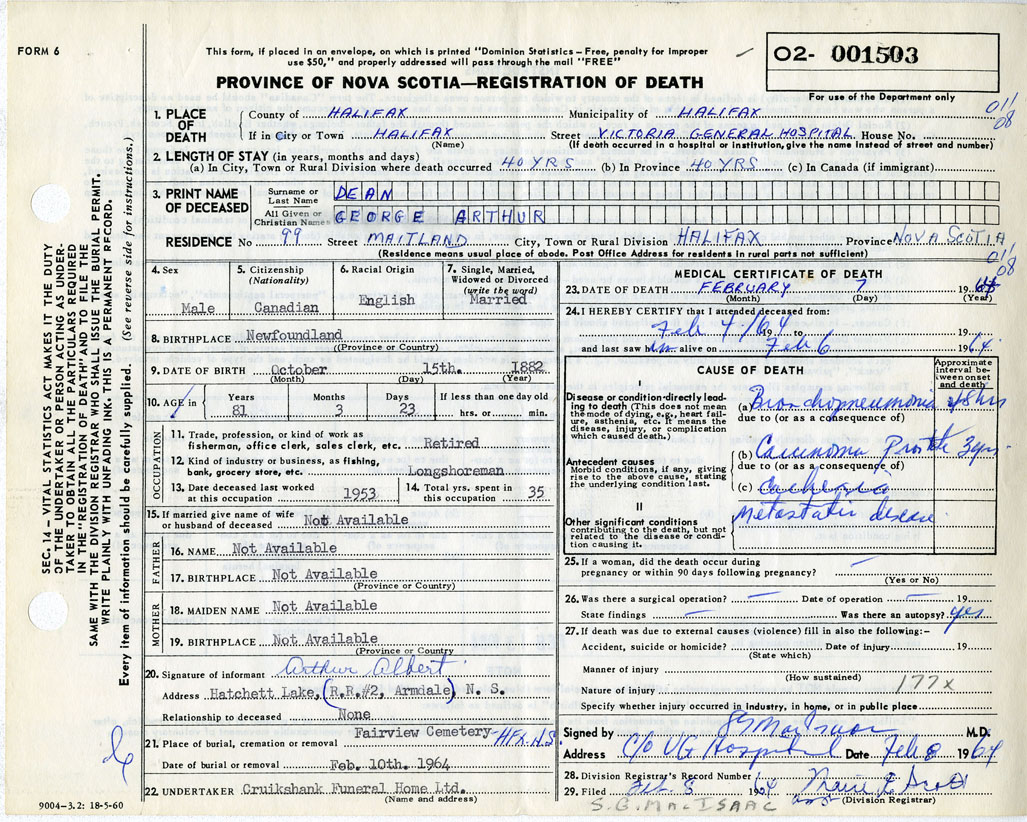 FORM 6
This form, if placed in an envelope, on which is printed "Dominion Statistics – Free, penalty for improper
use $50," and properly addressed will pass through the mail "FREE"
O2- 001503
For use of the Department only
PROVINCE OF NOVA SCOTIA—REGISTRATION OF DEATH
011/
08
1. PLACE OF DEATH
County of HALIFAX Municipality of HALIFAX
If in City or Town HALIFAX Street VICTORIA GENERAL HOSPITAL House No.
(Name) (If death occurred in a hospital or institution, give the name instead of street and number)
2. LENGTH OF STAY (in years, months and days)
(a) In City, Town or Rural Division where death occurred 40 YRS (b) In Province 40 YRS (c) In Canada (if immigrant)
3. PRINT NAME OF DECEASED
Surname or Last Name DEAN
All Given or Christian Names GEORGE ARTHUR
RESIDENCE No 99 Street MAITLAND City, Town or Rural Division HALIFAX Province NOVA SCOTIA
(Residence means usual place of abode. Post Office Address for residents in rural parts not sufficient)
011/
08
4. Sex Male
5. Citizenship (Nationality) Canadian
6. Racial Origin English
7. Single, Married, Widowed or Divorced (write the word) Married
8. BIRTHPLACE Newfoundland
((Province or Country)
9. DATE OF BIRTH October 15th. 1882
(Month) (Day) (Year)
10. AGE in Years 81 Months 3 Days 23 If less than one day old hrs. or min.
OCCUPATION
11. Trade, profession, or kind of work as
fisherman, office clerk, sales clerk, etc. Retired
12. Kind of industry or business, as fishing,
bank, grocery store, etc. Longshoreman
13. Date deceased last worked at this occupation 1953
14. Total yrs. spent in this occupation 35
15. If married give name of wife
or husband of deceased Not Available
FATHER
16. NAME Not Available
17. BIRTHPLACE Not Available
(Province or Country)
MOTHER
18. MAIDEN NAME Not Available
19. BIRTHPLACE Not Available
(Province or Country)
20. Signature of informant Arthur Albert
Address Hatchett Lake, (R.R.#2, Armdale) N. S.
Relationship to deceased None
21. Place of burial, cremation or removal Fairview Cemetery HFX. N.S.
Date of burial or removal Feb. 10th. 1964
22. UNDERTAKER Cruikshank Funeral Home Ltd.
(Name and address)
9004-3.2: 18-5-60
MEDICAL CERTIFICATE OF DEATH
23. DATE OF DEATH FEBRUARY 7 1964
(Month) (Day) (Year)
24. I HEREBY CERTIFY that I attended deceased from:
Feb 4/64 to 19
and last saw him alive on Feb 6 1964
CAUSE OF DEATH
Approximate interval between onset and death
I
Disease or condition directly leading to death (This does not mean the mode of dying, e.g., heart failure, asthenia, etc. It means the disease, injury, or complication which caused death.)
(a) Bronchopneumonia 48 hrs
due to (or as a consequence of)
Antecedent causes
Morbid conditions, if any, giving rise to the above cause, stating the underlying condition last.
(b) Carcinoma Prostate 3 yrs
due to (or as a consequence of)
(c) Cachexia
II
Other significant conditions
contributing to the death, but not related to the disease or condition causing it.
Metastatic disease
25. If a woman, did the death occur during
pregnancy or within 90 days following pregnancy? —
(Yes or No)
26. Was there a surgical operation? — Date of operation — 19
State findings — Was there an autopsy? yes
27. If death was due to external causes (violence) fill in also the following:–
Accident, suicide or homicide? Date of injury 19
(State which)
Manner of injury
(How sustained)
Nature of injury 177x
Specify whether injury occurred in industry, in home, or in public place
Signed by M.D.
Address C/o VG Hospital Date Feb 8 1964
28. Division Registrar's Record Number
29. Filed Feb. 8 1964
(Division Registrar)
S. G. MacISAAC
SEC. 14 – VITAL STATISTICS ACT MAKES IT THE DUTY
OF THE UNDERTAKER OR PERSON ACTING AS UNDER-
TAKER TO OBTAIN ALL THE PARTICULARS REQUIRED
IN THE "REGISTRATION OF DEATH" AND TO FILE THE
SAME WITH THE DIVISION REGISTRAR WHO SHALL ISSUE THE BURIAL PERMIT.
WRITE PLAINLY WITH UNFADING INK. THIS IS A PERMANENT RECORD.
Every item of information should be carefully supplied. (See reverse side for instructions.)